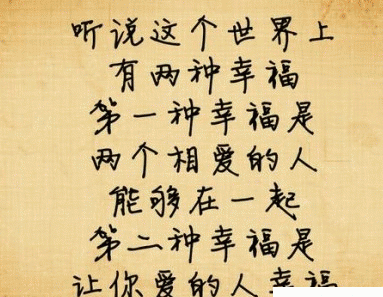 听说这个世界上
有两种幸福
第一种幸福是
两个相爱的人
能够在一起
第二种幸福是
让你爱的人幸福